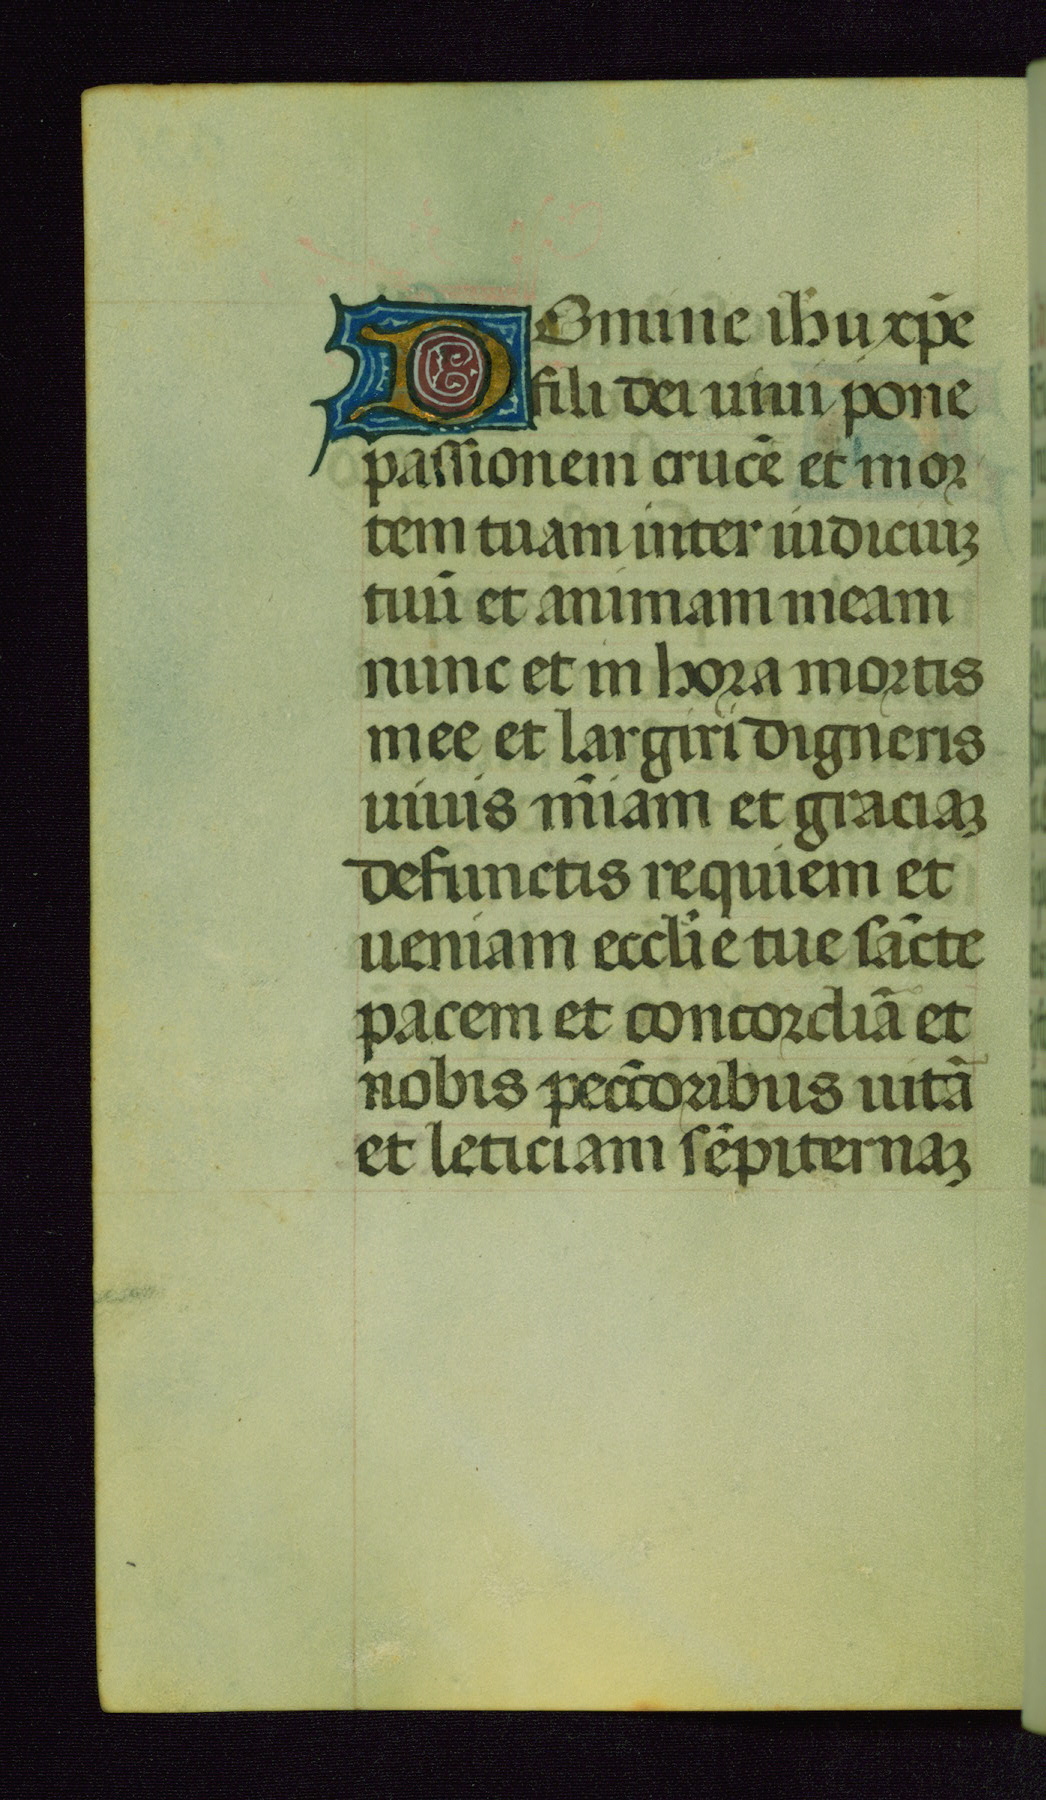 Domine ihu xp̄e
fili dei uiui pone
passionem crucē et mor
tem tuam inter iudiciuꝫ
tuū et animam meam
nunc et in hora mortis
mee et largiri digneris
uiuis m̄iam et graciaꝫ
defunctis requiem et
ueniam eccl̄ie tue sāncte
pacem et concordiā et
nobis pecc̄oribus uitā
et leticiam sēpiternaꝫ